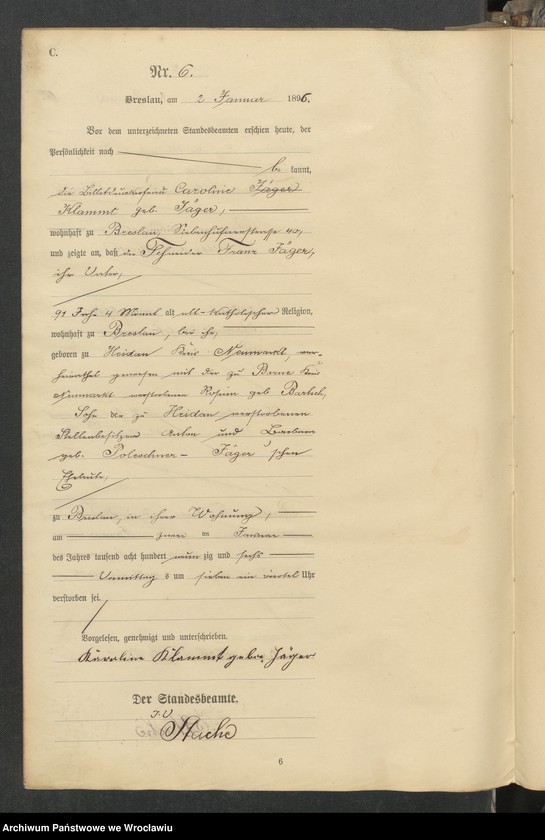 C.
Nr. 6.
Breslau, am 2 Januar 1896.
Vor dem unterzeichneten Standesbeamten erschien heute, der
Persönlichkeit nach
be kannt,
die Caroline Jäger
Klammt geb. Jäger,
wohnhaft zu Breslau, Siebenhufenerstrasse 40,
und zeigte an, daß der Schneider Franz Jäger,
ihr Vater,
91 Jahr 4 Monat alt alt-katholischer Religion,
wohnhaft zu Breslau, bei ihr,
geboren zu Heidau Kreis Neumarkt, ver-
heirathet gewesen mit der zu Borne Kreis
Neumarkt verstorbenen Rosina geb Bartsch,
Sohn der zu Heidau verstorbenen
Stellenbesitzer Anton und Barbara
geb. Poleschner- Jäger'schen
Eheleute,
zu Breslau, in ihrer Wohnung,
am zwei ten Januar
des Jahres tausend acht hundert neun zig und sechs
Vormittag s um sieben ein viertel Uhr
verstorben sei.
Vorgelesen, genehmigt und unterschrieben.
Karoline Klammt gebor. Jäger
Der Standesbeamte.
I.V
6
Archiwum Państwowe we Wrocławiu